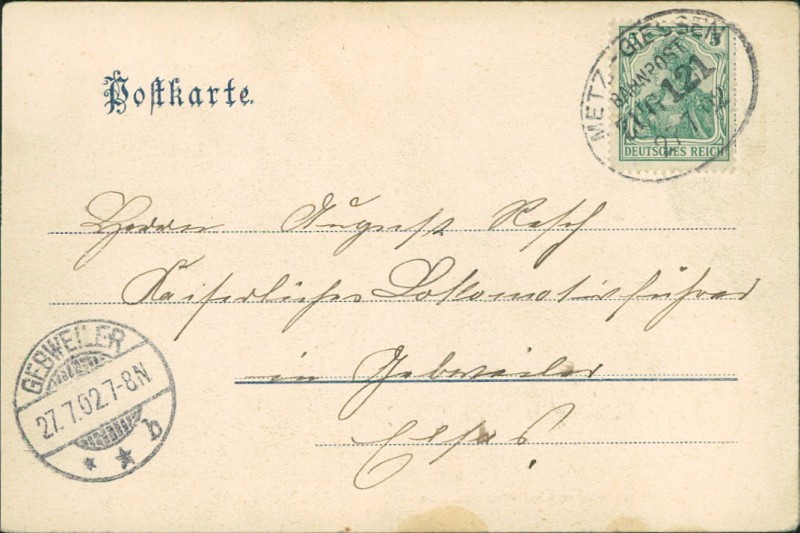 Postkarte.
METZ - GIESSEN
BAHNPOST
ZUG 121
7.02
DEUTSCHES REICH
Herrn August Resch
Kaiserlicher Lokomotivführer
in Gebweiler
Elsas
GEBWEILER
27.7.02.7-8N
b